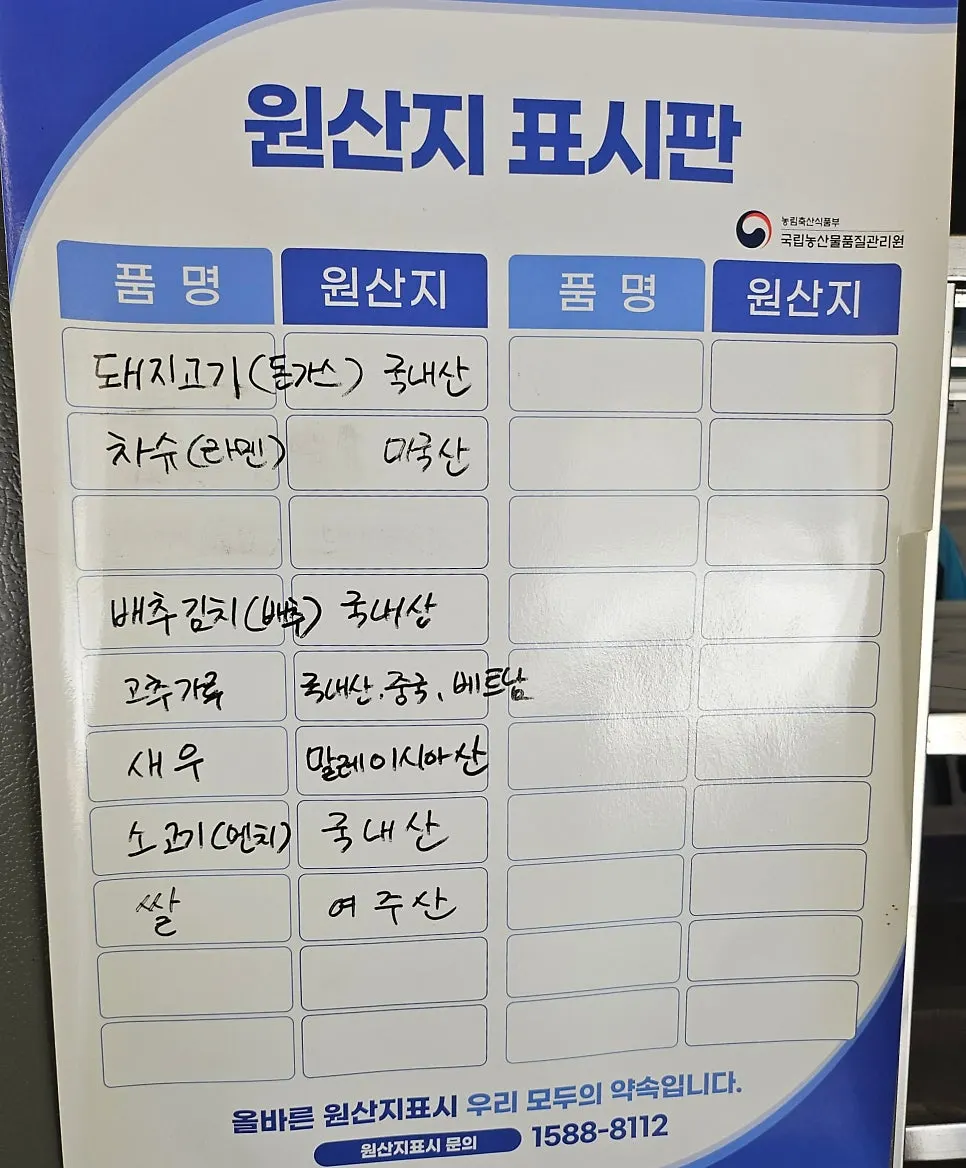 원산지 표시판
농림축산식품부
국립농산물품질관리원
품 명 원산지 품 명 원산지
돼지고기(돈가스) 국내산
차슈(라멘) 미국산
배추김치(배추) 국내산
고추가루 국내산, 중국, 베트남
새우 말레이시아산
소고기(멘치) 국내산
쌀 여주산
올바른 원산지표시 우리 모두의 약속입니다.
원산지표시 문의 1588-8112